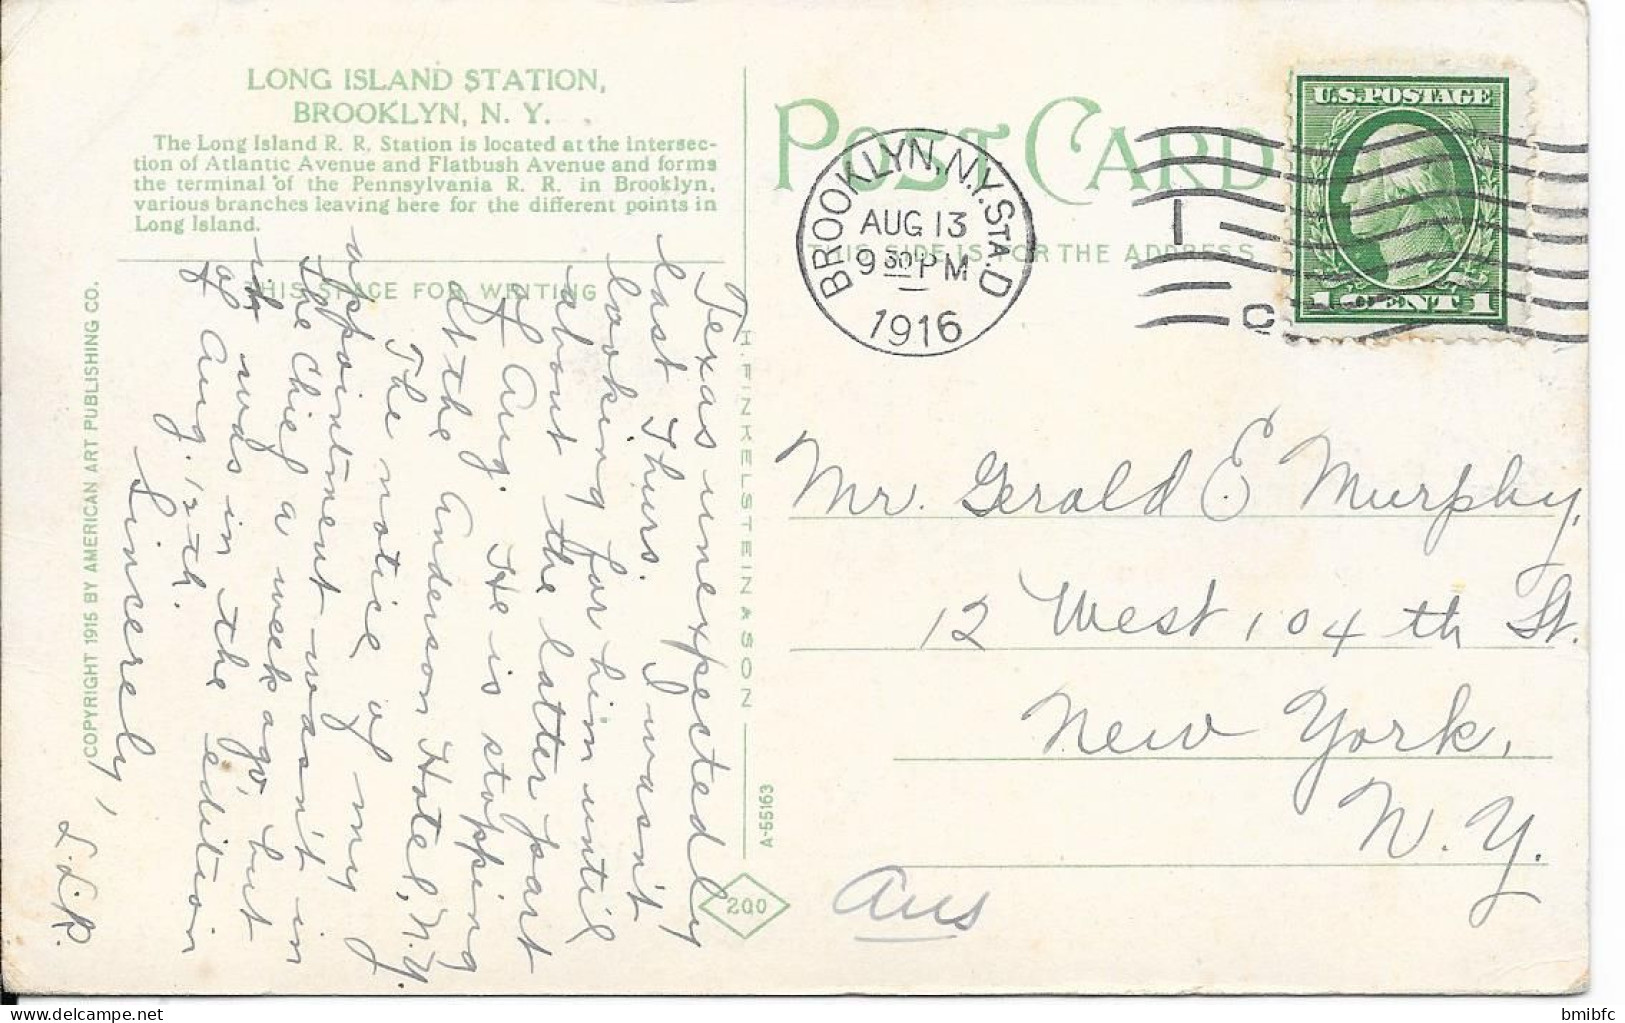 LONG ISLAND STATION,
BROOKLYN, N. Y.
The Long Island R. R. Station is located at the intersec-
tion of Atlantic Avenue and Flatbush Avenue and forms
the terminal of the Pennsylvania R. R. in Brooklyn,
various branches leaving here for the different points in
Long Island.
THIS SPACE FOR WRITING
Texas unexpectedly
last Thurs. I wasn't
looking for him until
about the latter part
of Aug. He is stopping
at the Anderson Hotel, N.Y.
The notice of my
appointment wasn't in
the Chief a week ago, but
it was in the edition
of Aug. 12th.
Sincerely,
L.L.R.
COPYRIGHT 1915 BY AMERICAN ART PUBLISHING CO.
H. FINKELSTEIN & SON
A-55163
200
POST CARD
THIS SIDE IS FOR THE ADDRESS
BROOKLYN, N.Y. STA. D
AUG 13
9 30 PM
1916
1
C
U.S. POSTAGE
1 CENT 1
Mr. Gerald E Murphy,
12 West 104th St.
New York,
N.Y.
Ans
bmibfc